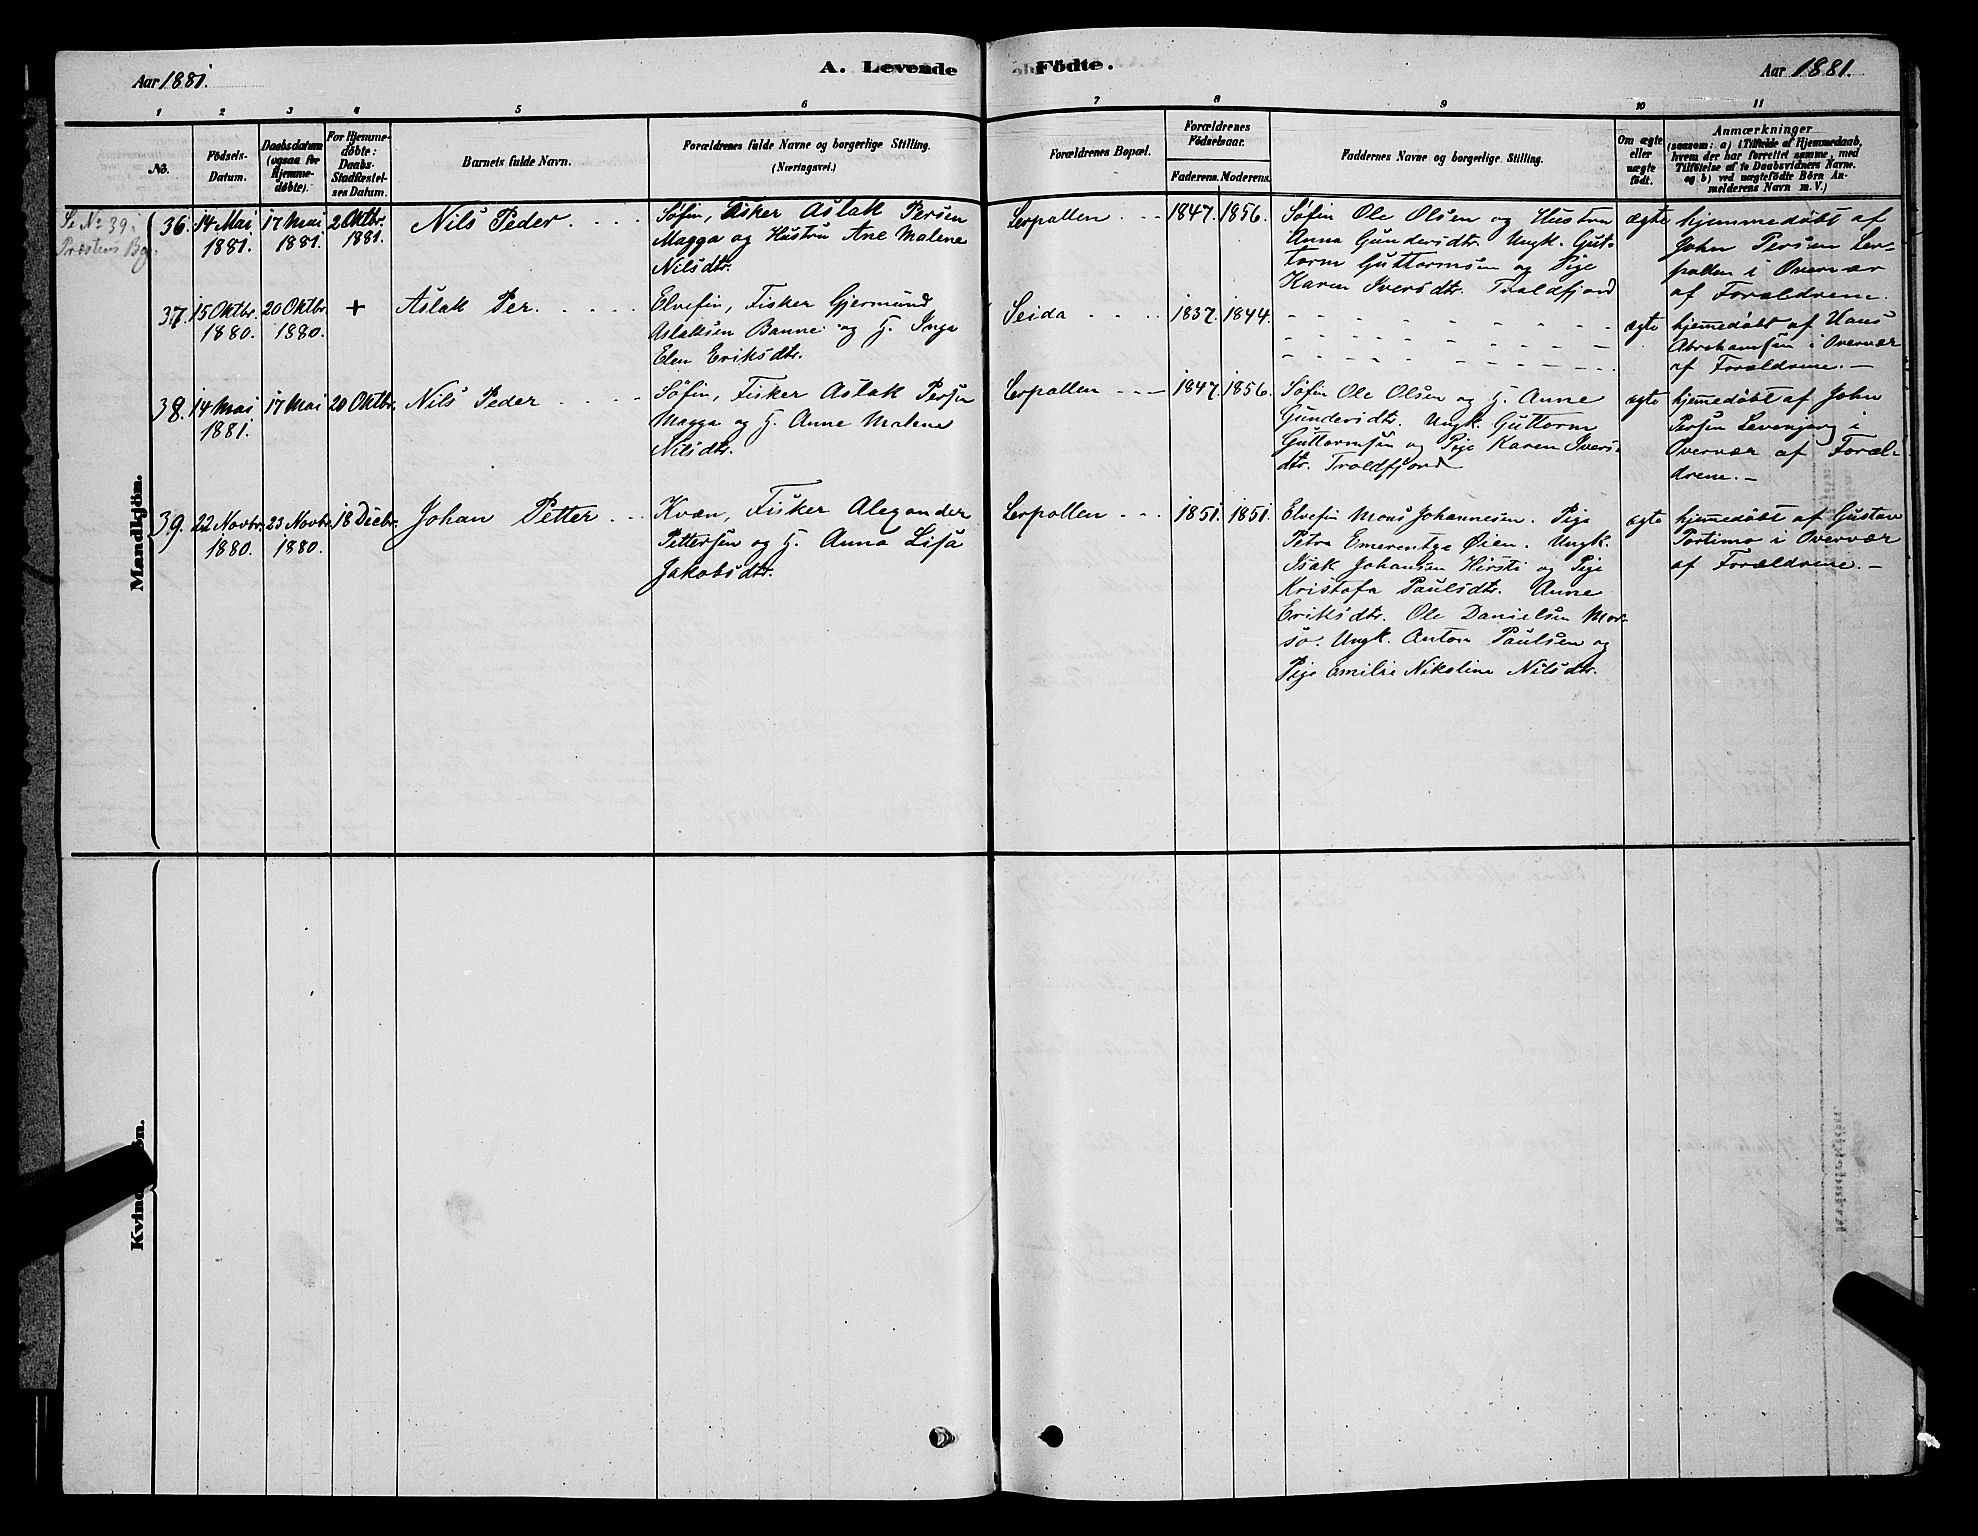 Aar 1881.
A. Levende
Födte.
Aar 1881.
1 2 3 4 5 6 7 8 9 10 11
No.
Födsels-
Datum.
Daabsdatum
(ogsaa for
Hjemme-
döbte).
For Hjemme-
döbte:
Daabs-
Stadfæstel-
ses Datum.
Barnets fulde Navn.
Forældrenes fulde Navne og borgerlige Stilling.
(Næringsvei.)
Forældrenes Bopæl.
Forældrenes
Födselsaar.
Faderens. Moderens.
Faddernes Navne og borgerlige Stilling.
Om ægte
eller
uægte
födt.
Anmærkninger
(saasom: a) i Tilfælde af Hjemmedaab,
hvem der har forrettet samme, med
Tilföielse af to Daabsvidners Navne.
og b) ved uægtefödte Börn An-
melderens Navn m. V.)
Mandkjön.
Se No 39 i
Præstens Bog.
36.
14 Mai
1881.
17 Mai
1881.
2 Oktbr.
1881.
Nils Peder
Søfin, Fisker Aslak Persen
Magga og Hustru Ane Malene
Nilsdtr.
Lerpollen
1847. 1856.
Søfin Ole Olsen og Hustru
Anna Gundersdtr. Ungk. Gut-
torm Guttormsen og Pige
Karen Iversdtr. Troldfjord
ægte
hjemmedøbt af
John Persen Ler-
pollen i Overvær
af Forældrene.
37.
15 Oktbr.
1880.
20 Oktbr.
1880.
+
Aslak Per.
Elvefin, Fisker Gjermund
Aslaksen Banne og H. Inga
Elen Eriksdtr.
Seida
1837. 1844.
ægte
hjemedøbt af Hans
Abrahamsen i Overvær
af Forældrene. -
38.
14 Mai
1881.
17 Mai
20 Oktbr.
Nils Peder
Søfin, Fisker Aslak Persen
Magga og H. Anne Malene
Nilsdtr.
Lerpollen
1847. 1856.
Søfin Ole Olsen og H. Anne
Gundersdtr. Ungk. Guttorm
Guttormsen og Pige Karen Ivers-
dtr. Troldfjord
ægte
hjemedøbt af John
Persen i
Overvær af Foræl-
drene. -
39.
22 Novbr.
1880.
23 Novbr.
1880.
18 Decbr.
Johan Petter
Kvæn, Fisker Alexander
Pettersen og H. Anna Lisa
Jakobsdtr.
Lerpollen
1851. 1851.
Elvefin Mons Johannesen. Pige
Petra Emerentza Øien. Ungk.
Isak Johansen Hirsti og Pige
Kristofa Paulsdtr. Anne
Eriksdtr. Ole Danielsen Mor-
so. Ungk. Anton Paulsen og
Pige Emilie Nikoline Nilsdtr.
ægte
hjemedøbt af Gustav
Portimo i Overvær
af Forældrene. -